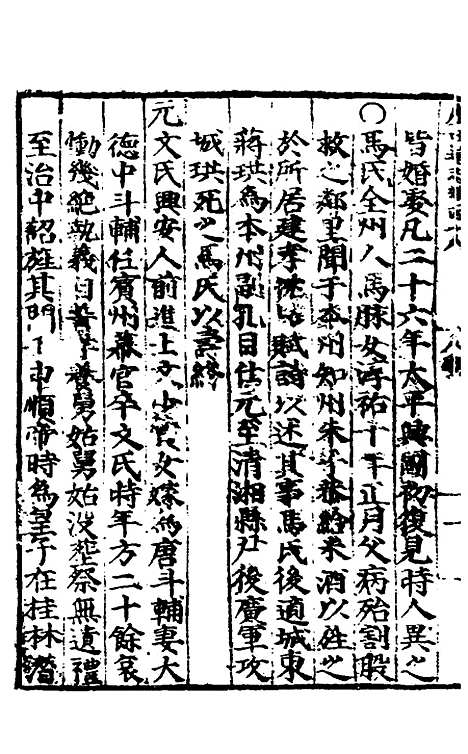 皆婚妻凡二十六年太平興國初復見時人異之
○馬氏全州人馬脉女淳祐十年正月父病殆割股
救之鄰里聞于本州知州朱給米酒以旌之
於所居建孝坊賦詩以述其事馬氏後適城東
蔣珙爲本州副孔目仕元至清湘縣尹後廣軍攻
城珙死之馬氏以壽終
元文氏興安人前進士女嫁爲唐斗輔妻大
德中斗輔仕賓州幕官卒文氏時年方二十餘哀
慟幾絶執義自誓孝養舅姑舅姑没塟祭無遺禮
至治中紹旌其門一時順帝時爲皇子在桂林潛